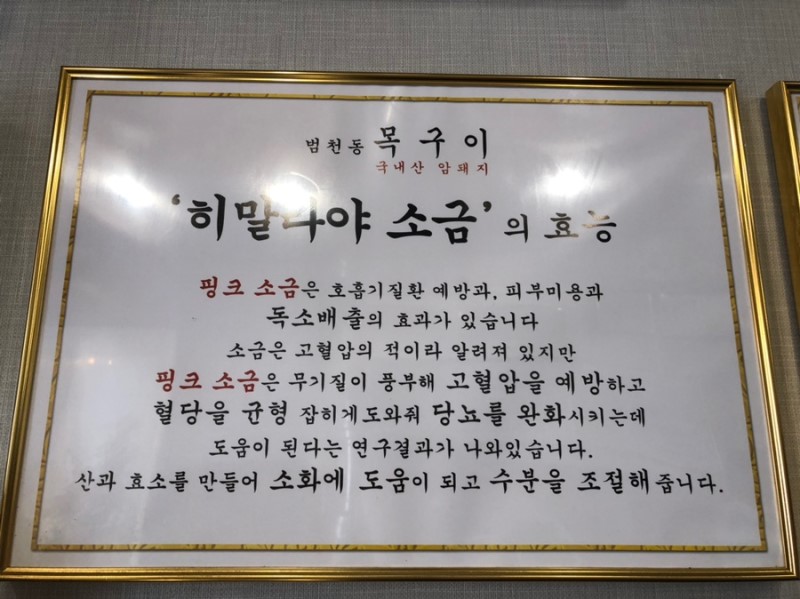 범천동 목구이
국내산 암돼지
‘히말라야 소금’의 효능
핑크 소금은 호흡기질환 예방과, 피부미용과
독소배출의 효과가 있습니다
소금은 고혈압의 적이라 알려져 있지만
핑크 소금은 무기질이 풍부해 고혈압을 예방하고
혈당을 균형 잡히게 도와줘 당뇨를 완화시키는데
도움이 된다는 연구결과가 나와있습니다.
산과 효소를 만들어 소화에 도움이 되고 수분을 조절해 줍니다.